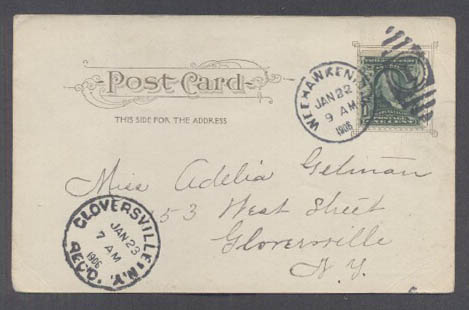 Post Card
THIS SIDE FOR THE ADDRESS
WEEHAWKEN, N.J.
JAN 22
9 AM
1906
Miss Adelia Gelman
53 West Street
Gloversville
N.Y.
GLOVERSVILLE, N.Y.
JAN 23
7 AM
1906
REC'D.